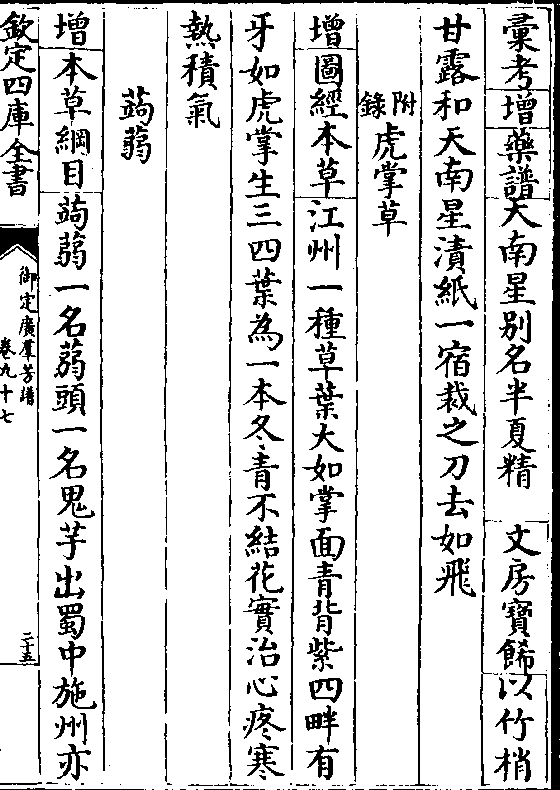 彙考增藥譜天南星别名半夏精　文房寶飾以竹梢
甘露和天南星漬紙一宿裁之刀去如飛
附録虎掌草
增圖經本草江州一種草葉大如掌面青背紫四畔有
牙如虎掌生三四葉為一本冬青不結花實治心疼寒
熱積氣
蒟蒻
增本草綱目蒟蒻一名蒻頭一名鬼芋出蜀中施州亦
欽定四庫全書
御定廣羣芳譜
卷九十七
二十五